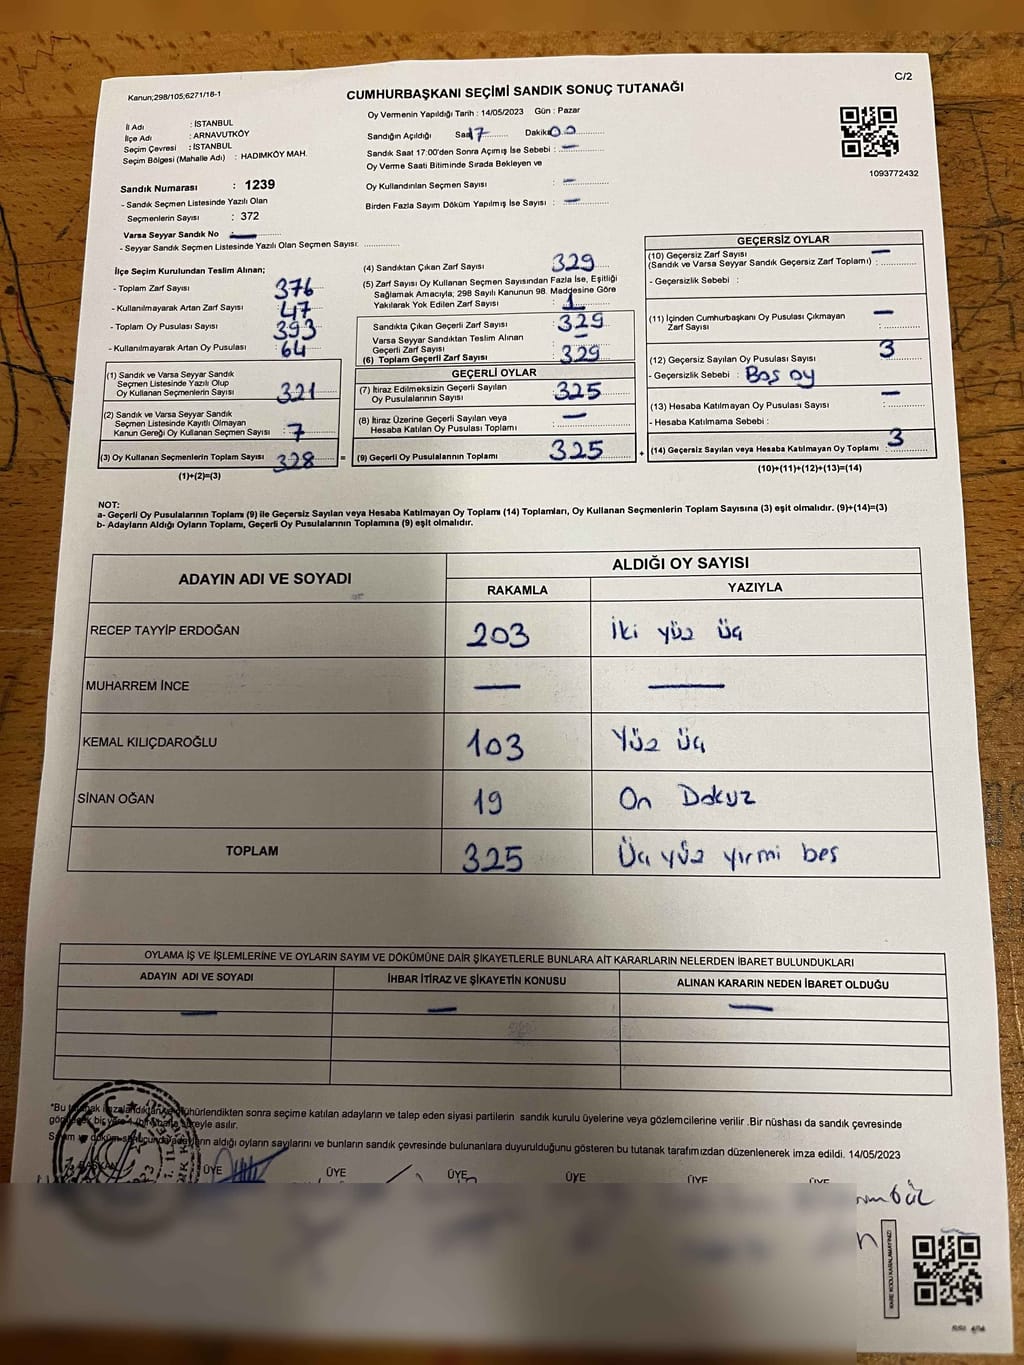 C/2
Kanun;298/105;6271/18-1
CUMHURBAŞKANI SEÇİMİ SANDIK SONUÇ TUTANAĞI
Oy Vermenin Yapıldığı Tarih : 14/05/2023 Gün : Pazar
İl Adı : İSTANBUL
İlçe Adı : ARNAVUTKÖY
Seçim Çevresi : İSTANBUL
Seçim Bölgesi (Mahalle Adı) : HADIMKÖY MAH.
Sandığın Açıldığı Saat 17 Dakika 00
Sandık Saat 17:00'den Sonra Açımış İse Sebebi : —
Oy Verme Saati Bitiminde Sırada Bekleyen ve
Oy Kullandırılan Seçmen Sayısı : —
Birden Fazla Sayım Döküm Yapılmış İse Sayısı : —
1093772432
Sandık Numarası : 1239
- Sandık Seçmen Listesinde Yazılı Olan
Seçmenlerin Sayısı : 372
Varsa Seyyar Sandık No : —
- Seyyar Sandık Seçmen Listesinde Yazılı Olan Seçmen Sayısı:
İlçe Seçim Kurulundan Teslim Alınan;
- Toplam Zarf Sayısı 376
- Kullanılmayarak Artan Zarf Sayısı 47
- Toplam Oy Pusulası Sayısı 393
- Kullanılmayarak Artan Oy Pusulası 64
(1) Sandık ve Varsa Seyyar Sandık
Seçmen Listesinde Yazılı Olup
Oy Kullanan Seçmenlerin Sayısı 321
(2) Sandık ve Varsa Seyyar Sandık
Seçmen Listesinde Kayıtlı Olmayan
Kanun Gereği Oy Kullanan Seçmen Sayısı 7
(3) Oy Kullanan Seçmenlerin Toplam Sayısı 328 =
(1)+(2)=(3)
(4) Sandıktan Çıkan Zarf Sayısı 329
(5) Zarf Sayısı Oy Kullanan Seçmen Sayısından Fazla İse, Eşitliği
Sağlamak Amacıyla, 298 Sayılı Kanunun 98. Maddesine Göre
Yakılarak Yok Edilen Zarf Sayısı : 1
Sandıkta Çıkan Geçerli Zarf Sayısı : 329
Varsa Seyyar Sandıktan Teslim Alınan
Geçerli Zarf Sayısı : —
(6) Toplam Geçerli Zarf Sayısı : 329
GEÇERLİ OYLAR
(7) İtiraz Edilmeksizin Geçerli Sayılan
Oy Pusulalarının Sayısı : 325
(8) İtiraz Üzerine Geçerli Sayılan veya
Hesaba Katılan Oy Pusulası Toplamı : —
(9) Geçerli Oy Pusulalarının Toplamı 325 +
GEÇERSİZ OYLAR
(10) Geçersiz Zarf Sayısı
(Sandık ve Varsa Seyyar Sandık Geçersiz Zarf Toplamı) : —
- Geçersizlik Sebebi :
(11) İçinden Cumhurbaşkanı Oy Pusulası Çıkmayan
Zarf Sayısı : —
(12) Geçersiz Sayılan Oy Pusulası Sayısı : 3
- Geçersizlik Sebebi : Boş oy
(13) Hesaba Katılmayan Oy Pusulası Sayısı : —
- Hesaba Katılmama Sebebi :
(14) Geçersiz Sayılan veya Hesaba Katılmayan Oy Toplamı : 3
(10)+(11)+(12)+(13)=(14)
NOT:
a- Geçerli Oy Pusulalarının Toplamı (9) ile Geçersiz Sayılan veya Hesaba Katılmayan Oy Toplamı (14) Toplamları, Oy Kullanan Seçmenlerin Toplam Sayısına (3) eşit olmalıdır. (9)+(14)=(3)
b- Adayların Aldığı Oyların Toplamı, Geçerli Oy Pusulalarının Toplamına (9) eşit olmalıdır.
ADAYIN ADI VE SOYADI ALDIĞI OY SAYISI
RAKAMLA YAZIYLA
RECEP TAYYİP ERDOĞAN 203 İki yüz üç
MUHARREM İNCE — —
KEMAL KILIÇDAROĞLU 103 Yüz üç
SİNAN OĞAN 19 On Dokuz
TOPLAM 325 Üç yüz yirmi beş
OYLAMA İŞ VE İŞLEMLERİNE VE OYLARIN SAYIM VE DÖKÜMÜNE DAİR ŞİKAYETLERLE BUNLARA AİT KARARLARIN NELERDEN İBARET BULUNDUKLARI
ADAYIN ADI VE SOYADI İHBAR İTİRAZ VE ŞİKAYETİN KONUSU ALINAN KARARIN NEDEN İBARET OLDUĞU
— — —
*Bu tutanak imzalandıktan ve mühürlendikten sonra seçime katılan adayların ve talep eden siyasi partilerin sandık kurulu üyelerine veya gözlemcilerine verilir .Bir nüshası da sandık çevresinde
süreyle asılır.
adayların aldığı oyların sayılarını ve bunların sandık çevresinde bulunanlara duyurulduğunu gösteren bu tutanak tarafımızdan düzenlenerek imza edildi. 14/05/2023
BAŞKAN ÜYE ÜYE ÜYE ÜYE ÜYE ÜYE
KARE KODU KARALAMAYINIZ!